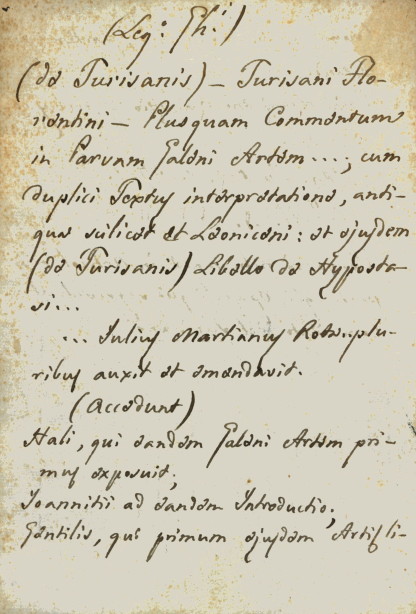 (Leg.º Gh.i)
(de Turisanis) – Turisani Flo-
rentini – Plusquam Commentum
in Parvam Galeni Artem ....; cum
duplici Textus interpretatione, anti-
qua scilicet et Leoniceni: et ejusdem
(de Turisanis) Libello de Hyposta-
si...
... Julius Martianus Rota..plu-
ribus auxit et emendavit.
(Accedunt)
Hali, qui eandem Galeni Artem pri-
mus exposuit;
Joannitii ad eandem Introductio;
Gentilis, qui primum ejusdem Artis li-